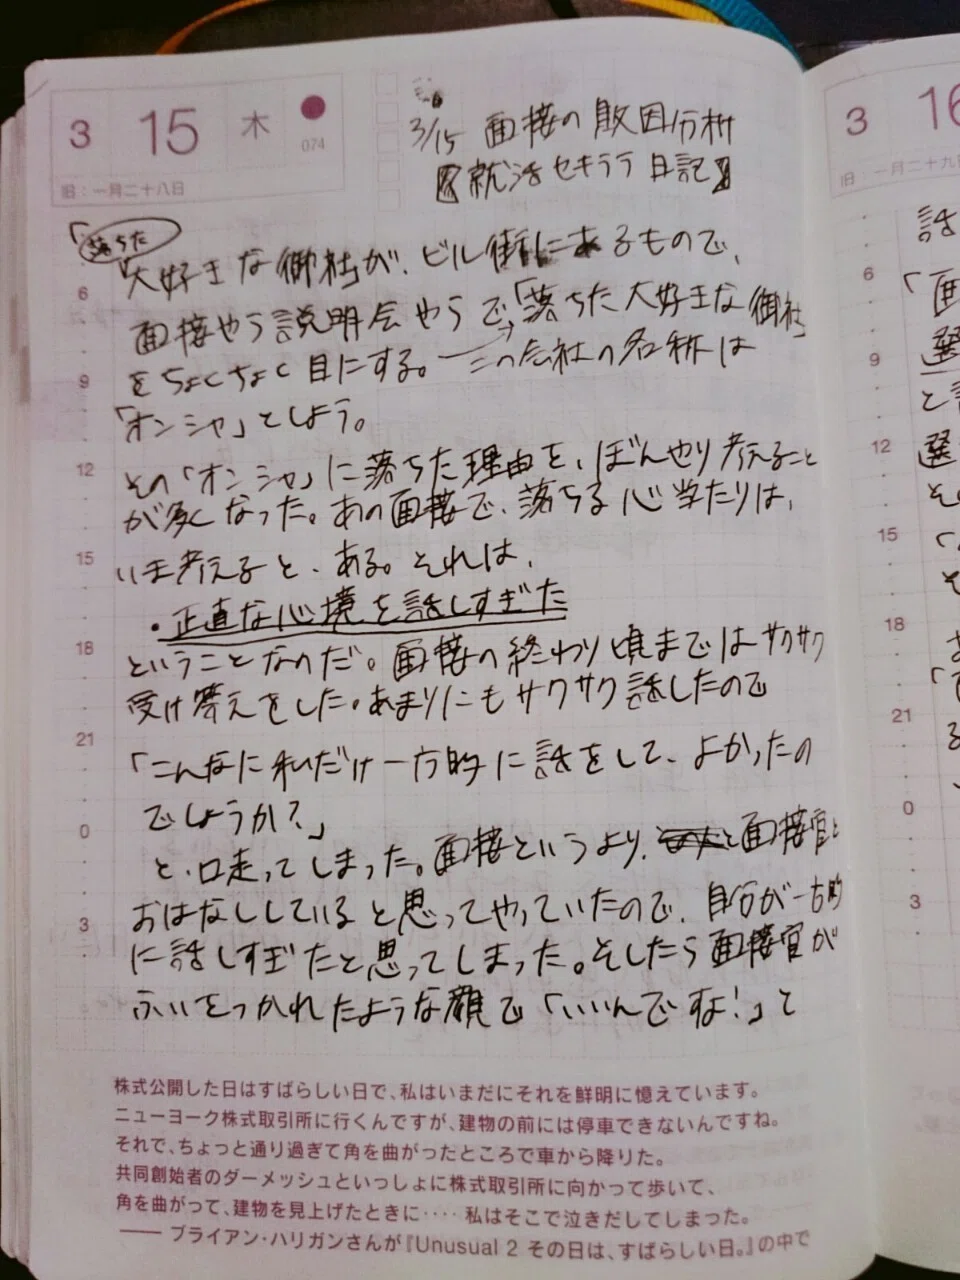 3 15 木
074
旧：一月二十八日
3/15 面接の敗因分析
【就活セキララ日記】
落ちた
「大好きな御社が、ビル街にあるもので、
面接やら説明会やらで「落ちた大好きな御社」
をちょくちょく目にする。→この会社の名称は
「オンシャ」としよう。
その「オンシャ」に落ちた理由を、ぼんやり考えること
が多くなった。あの面接で、落ちる心当たりは、
いま考えると、ある。それは、
・正直な心境を話しすぎた
ということなのだ。面接の終わり頃まではサクサク
受け答えをした。あまりにもサクサク話したので
「こんなに私だけ一方的に話をして、よかったの
でしょうか？」
と、口走ってしまった。面接というより、面接官と
おはなししていると思ってやっていたので、自分が一方的
に話しすぎたと思ってしまった。そしたら面接官が
ふいをつかれたような顔で「いいんですよ！」と
6
9
12
15
18
21
0
3
株式公開した日はすばらしい日で、私はいまだにそれを鮮明に憶えています。
ニューヨーク株式取引所に行くんですが、建物の前には停車できないんですね。
それで、ちょっと通り過ぎて角を曲がったところで車から降りた。
共同創始者のダーメッシュといっしょに株式取引所に向かって歩いて、
角を曲がって、建物を見上げたときに‥‥私はそこで泣きだしてしまった。
── ブライアン・ハリガンさんが『Unusual 2 その日は、すばらしい日。』の中で
3 16
旧：一月二十九日
話
「面
選
と
選
そ
6
9
12
15
18
21
0
3